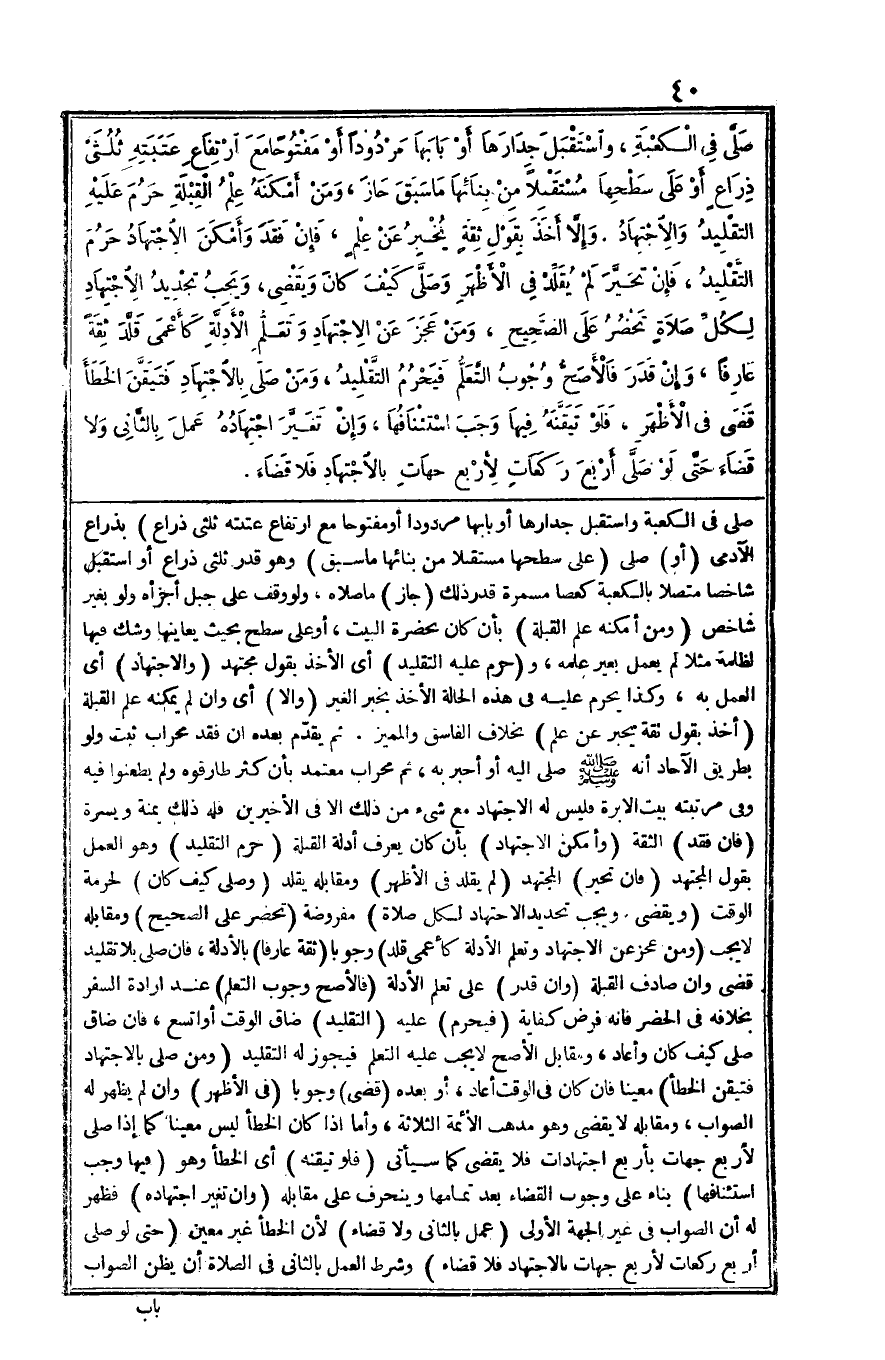 ٤٠
صَلَّى فِى الْكَعْبَةِ ، وَاسْتَقْبَلَ جِدَارَهَا أَوْ بَابَهَا مَرْدُودًا أَوْ مَفْتُوحًا مَعَ ارْتِفَاعِ عَتَبَتِهِ ثُلُثَىْ
ذِرَاعٍ أَوْ عَلَى سَطْحِهَا مُسْتَقْبِلاً مِنْ بِنَائِهَا مَا سَبَقَ جَازَ ، وَمَنْ أَمْكَنَهُ عِلْمُ الْقِبْلَةِ حَرُمَ عَلَيْهِ
التَّقْلِيدُ وَالِاجْتِهَادُ . وَإِلَّا أَخَذَ بِقَوْلِ ثِقَةٍ يُخْبِرُ عَنْ عِلْمٍ ، فَإِنْ فَقَدَ وَأَمْكَنَ الِاجْتِهَادُ حَرُمَ
التَّقْلِيدُ ، فَإِنْ تَحَيَّرَ لَمْ يُقَلِّدْ فِى الْأَظْهَرِ وَصَلَّى كَيْفَ كَانَ وَيَقْضِى، وَيَجِبُ تَجْدِيدُ الِاجْتِهَادِ
لِكُلِّ صَلَاةٍ تَحْضُرُ عَلَى الصَّحِيحِ ، وَمَنْ عَجَزَ عَنْ الِاجْتِهَادِ وَتَعَلُّمِ الْأَدِلَّةِ كَأَعْمَى قَلَّدَ ثِقَةً
عَارِفًا ، وَإِنْ قَدَرَ فَالْأَصَحُّ وُجُوبُ التَّعَلُّمِ فَيَحْرُمُ التَّقْلِيدُ ، وَمَنْ صَلَّى بِالِاجْتِهَادِ فَتَيَقَّنَ الْخَطَأَ
قَضَى فِى الْأَظْهَرِ ، فَلَوْ تَيَقَّنَهُ فِيهَا وَجَبَ اسْتِئْنَافُهَا ، وَإِنْ تَغَيَّرَ اجْتِهَادُهُ عَمِلَ بِالثَّانِى وَلَا
قَضَاءَ حَتَّى لَوْ صَلَّى أَرْبَعَ رَكَعَاتٍ لِأَرْبَعِ جِهَاتٍ بِالِاجْتِهَادِ فَلَا قَضَاءَ .
صلى فى الكعبة واستقبل جدارها أو بابها مردودا أو مفتوحا مع ارتفاع عتبته ثلثى ذراع ) بذراع
الآدمى ( أو ) صلى ( على سطحها مستقبلا من بنائها ما سبق ) وهو قدر ثلثى ذراع أو استقبل
شاخصا متصلا بالكعبة كعصا مسمرة قدر ذلك ( جاز ) ماصلاه ، ولو وقف على جبل أجزأه ولو بغير
شاخص ( ومن أمكنه علم القبلة ) بأن كان بحضرة البيت ، أو على سطح بحيث يعاينها وشك فيها
لظلمة مثلا لم يعمل بغير علمه ، و ( حرم عليه التقليد ) أى الأخذ بقول مجتهد ( والاجتهاد ) أى
العمل به ، وكذا يحرم عليه فى هذه الحالة الأخذ بخبر الغير ( والا ) أى وان لم يمكنه علم القبلة
( أخذ بقول ثقة يخبر عن علم ) بخلاف الفاسق والمميز . ثم يقدّم بعده ان فقد محراب ثبت ولو
بطريق الآحاد أنه ﷺ صلى اليه أو أخبر به ، ثم محراب معتمد بأن كثر طارقوه ولم يطعنوا فيه
وفى مرتبته بيت الابرة فليس له الاجتهاد مع شىء من ذلك الا فى الأخيرين فله ذلك يمنة ويسرة
( فان فقد ) الثقة ( وأمكن الاجتهاد ) بأن كان يعرف أدلة القبلة ( حرم التقليد ) وهو العمل
بقول المجتهد ( فان تحير ) المجتهد ( لم يقلد فى الأظهر ) ومقابله يقلد ( وصلى كيف كان ) لحرمة
الوقت ( ويقضى . ويجب تجديد الاجتهاد لكل صلاة ) مفروضة ( تحضر على الصحيح ) ومقابله
لايجب ( ومن عجز عن الاجتهاد وتعلم الأدلة كأعمى قلد ) وجوبا ( ثقة عارفا ) بالأدلة ، فان صلى بلا تقليد
قضى وان صادف القبلة ( وان قدر ) على تعلم الأدلة ( فالأصح وجوب التعلم ) عند ارادة السفر
بخلافه فى الحضر فانه فرض كفاية ( فيحرم ) عليه ( التقليد ) ضاق الوقت أو اتسع ، فان ضاق
صلى كيف كان وأعاد ، ومقابل الأصح لايجب عليه التعلم فيجوز له التقليد ( ومن صلى بالاجتهاد
فتيقن الخطأ ) معينا فان كان فى الوقت أعاد ، أو بعده ( قضى ) وجوبا ( فى الأظهر ) وان لم يظهر له
الصواب ، ومقابله لا يقضى وهو مذهب الأئمة الثلاثة ، وأما اذا كان الخطأ ليس معينا كما إذا صلى
لأربع جهات بأربع اجتهادات فلا يقضى كما سيأتى ( فلو تيقنه ) أى الخطأ وهو ( فيها وجب
استئنافها ) بناء على وجوب القضاء بعد تمامها وينحرف على مقابله ( وان تغير اجتهاده ) فظهر
له أن الصواب فى غير الجهة الأولى ( عمل بالثانى ولا قضاء ) لأن الخطأ غير معين ( حتى لو صلى
أربع ركعات لأربع جهات بالاجتهاد فلا قضاء ) وشرط العمل بالثانى فى الصلاة أن يظن الصواب
باب